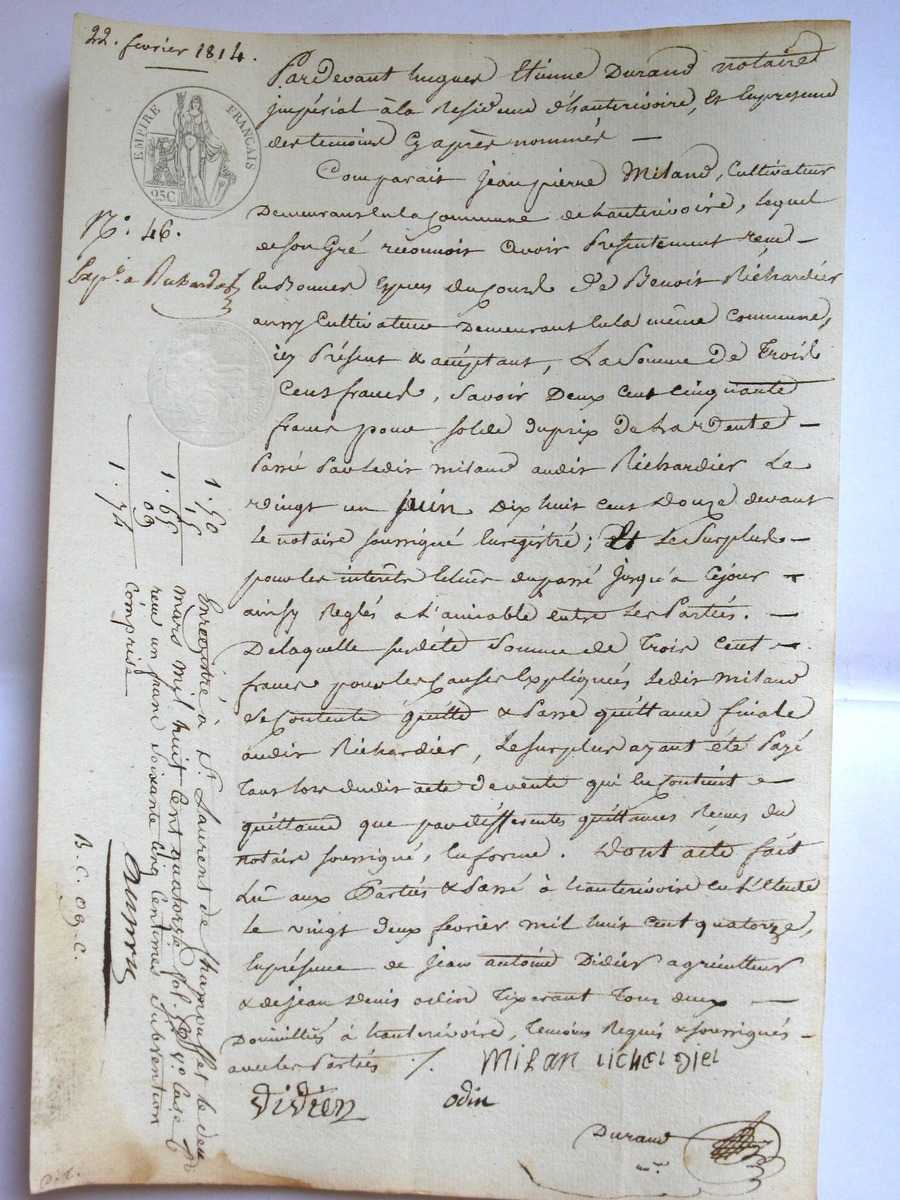 22. fevrier 1814.
EMPIRE FRANÇAIS
25C.
N.º 46.
Pardevant hugues Etienne Durand notaire
imperial à la Residence d'hauterivoire, Et en presence
des temoins Cy après nommés —
Comparait jean pierre Miland, Cultivateur
Demeurant en la Commune de hauterivoire, lequel
de son Gré reconnoit avoir Presentement reçu —
En Bonnes Especes du Cours De Benoit Richardier
aussy Cultivateur Demeurant en la même Commune,
icy Présent & acceptant, La Somme de Trois
Cent francs, Savoir Deux cent cinquante
francs pour solde du prix de la Vente —
Passé Par ledit miland audit Richardier Le
vingt un juin Dix huit cent Douze devant
Le notaire soussigné Enregistré; Et Le Surplus —
pour les intérêts du passé jusqu'a Cejour —
ainsy Reglés a L'amiable entre Les Parties. —
De laquelle susdite Somme de Trois Cent —
francs pour les Causes Expliquées Ledit Miland
Se Contente quitte & Passe quittance finale
audit Richardier, Le Surplus ayant été Payé
Tant lors dudit acte de vente qui En Contient —
quittance que par differentes quittances Reçues du
notaire soussigné, En forme. Dont acte fait
Lû aux Parties & Passé à hauterivoire en L'Etude
Le vingt Deux fevrier mil huit Cent quatorze,
En présence de jean antoine Didier agriculteur
& de jean Denis odin Tixerant Tous deux —
Domiciliés à hauterivoire, Temoins Requis & soussignés
avec les Parties ./.
Milan
Didier
odin
Durand
1.50
15
1.65
09
1.74
Enregistré à St. Laurent de Chamousset le deux
mars mil huit Cent quatorze fol.
reçu un franc Soixante cinq Centimes Subvention
Comprise
B.C. 09.C.